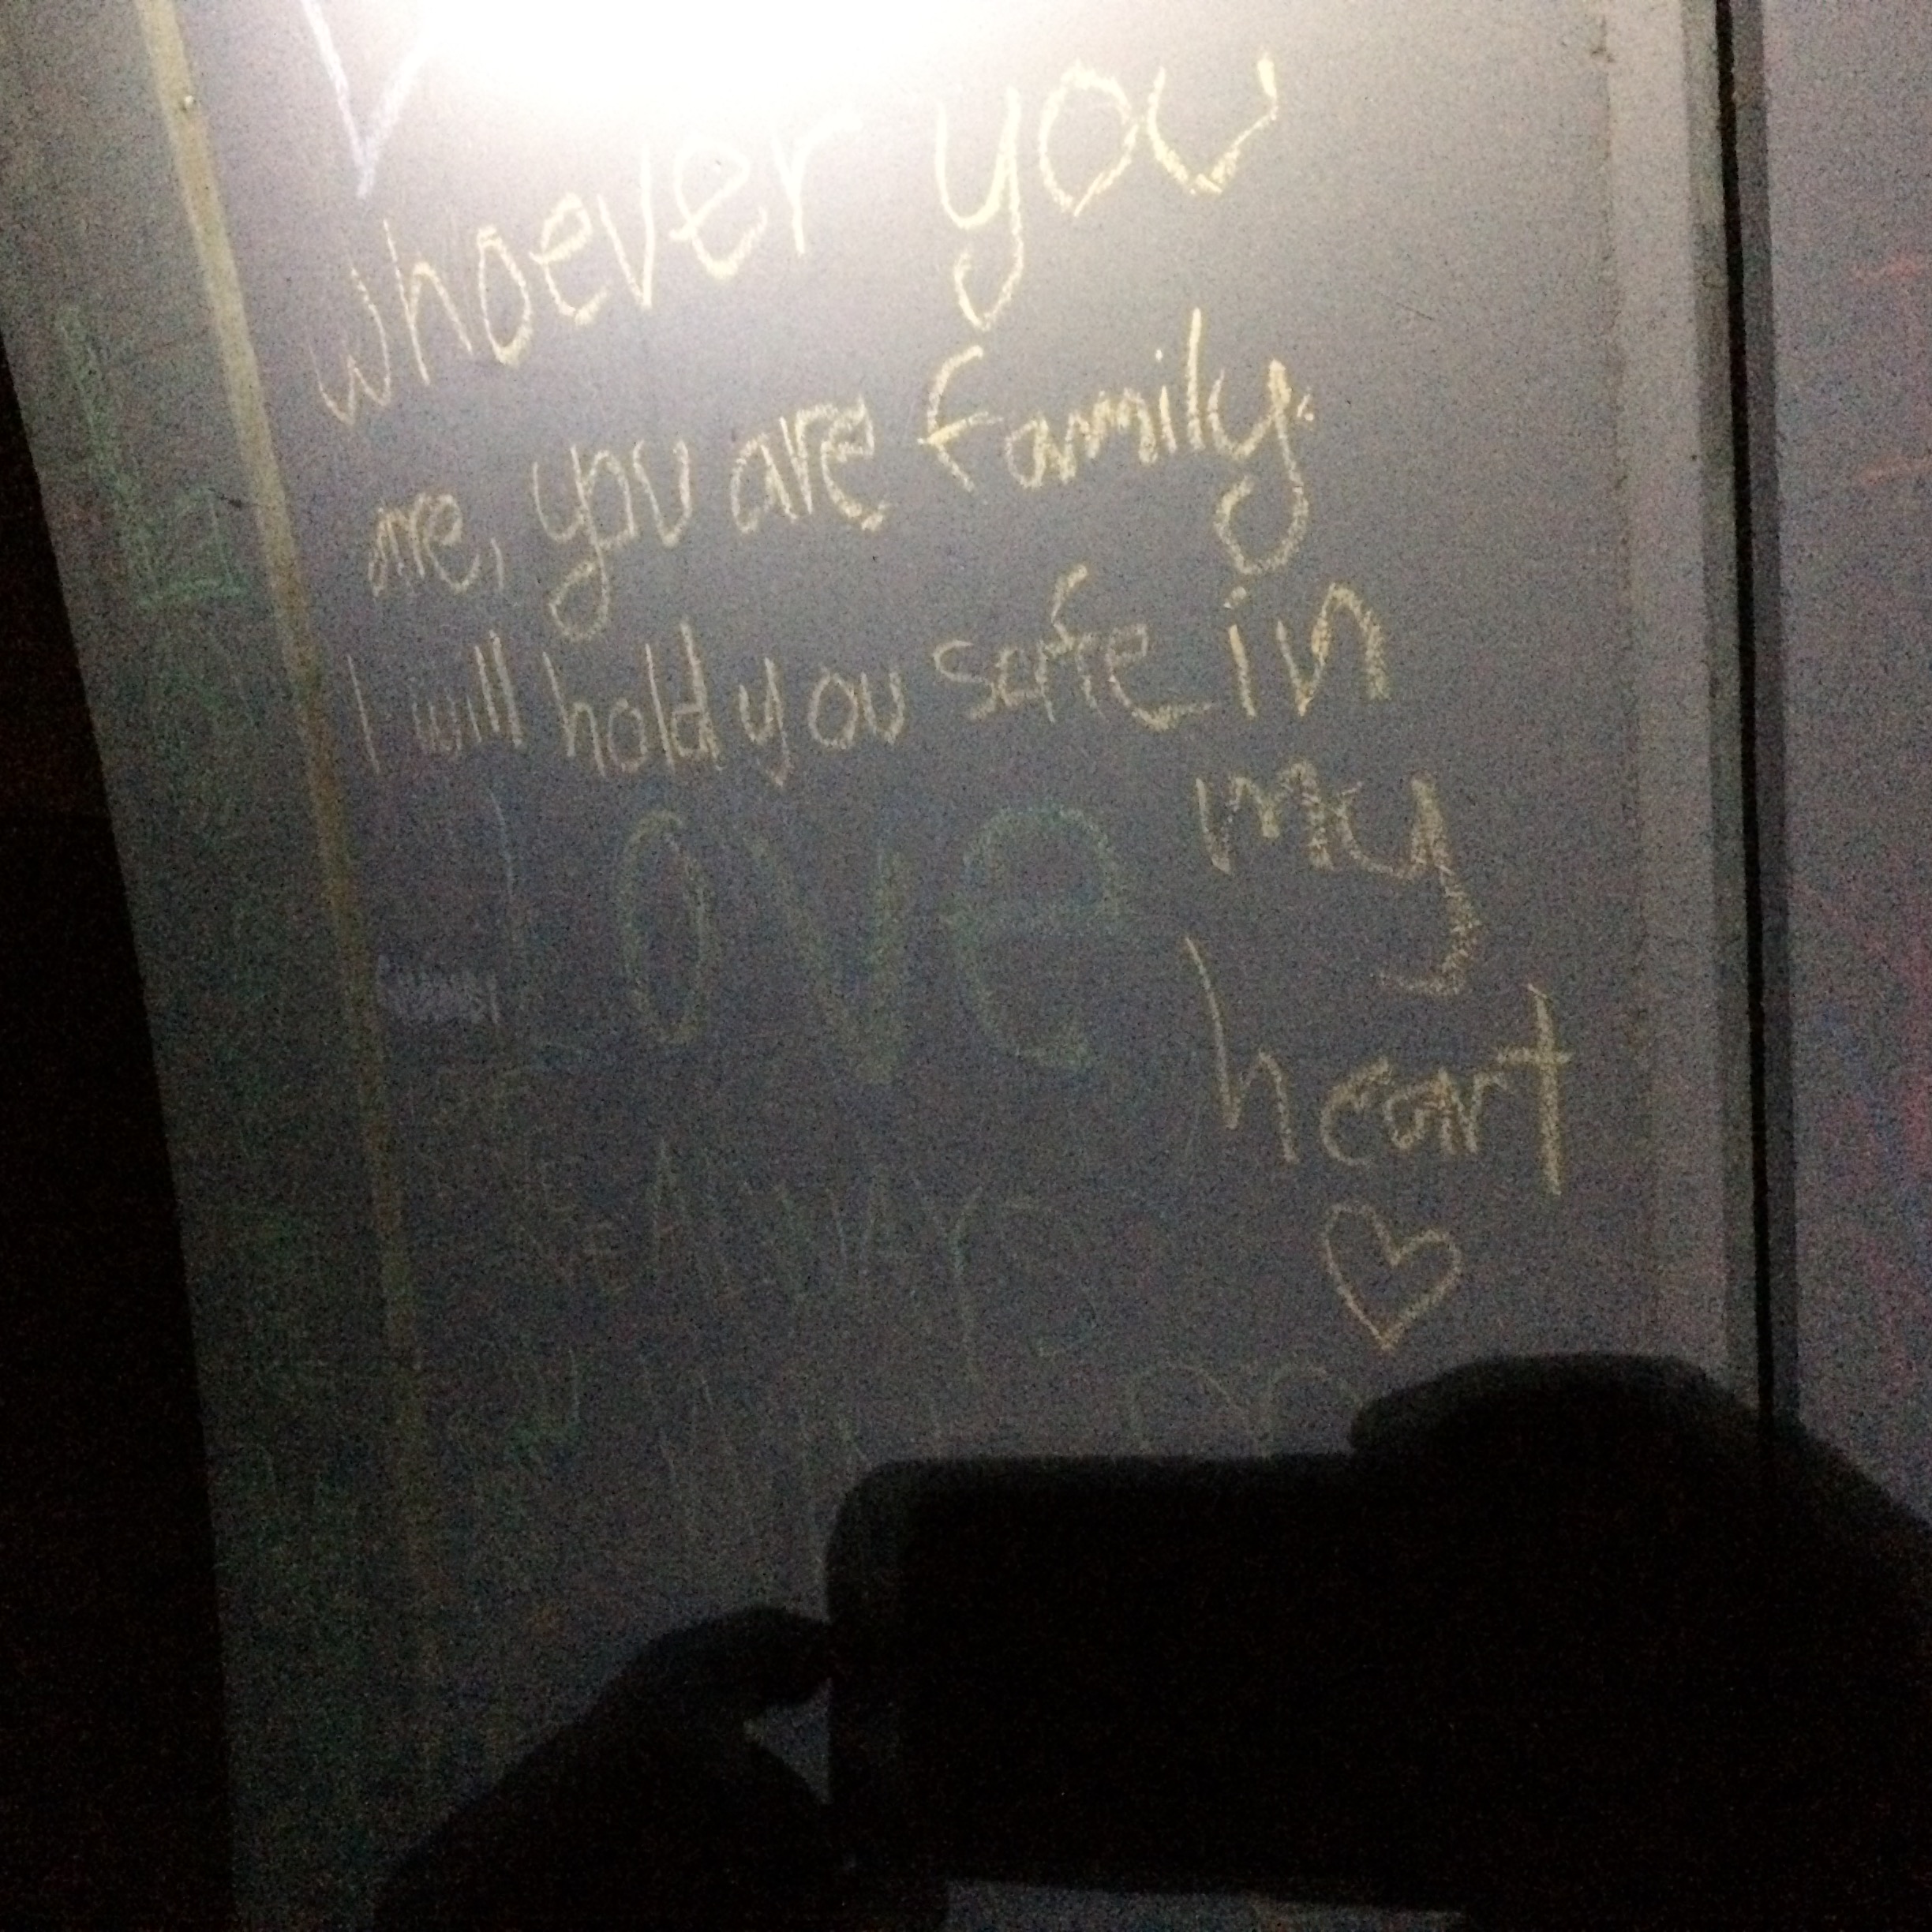 Whoever you
are, you are family.
I will hold you safe in
my
heart
Love